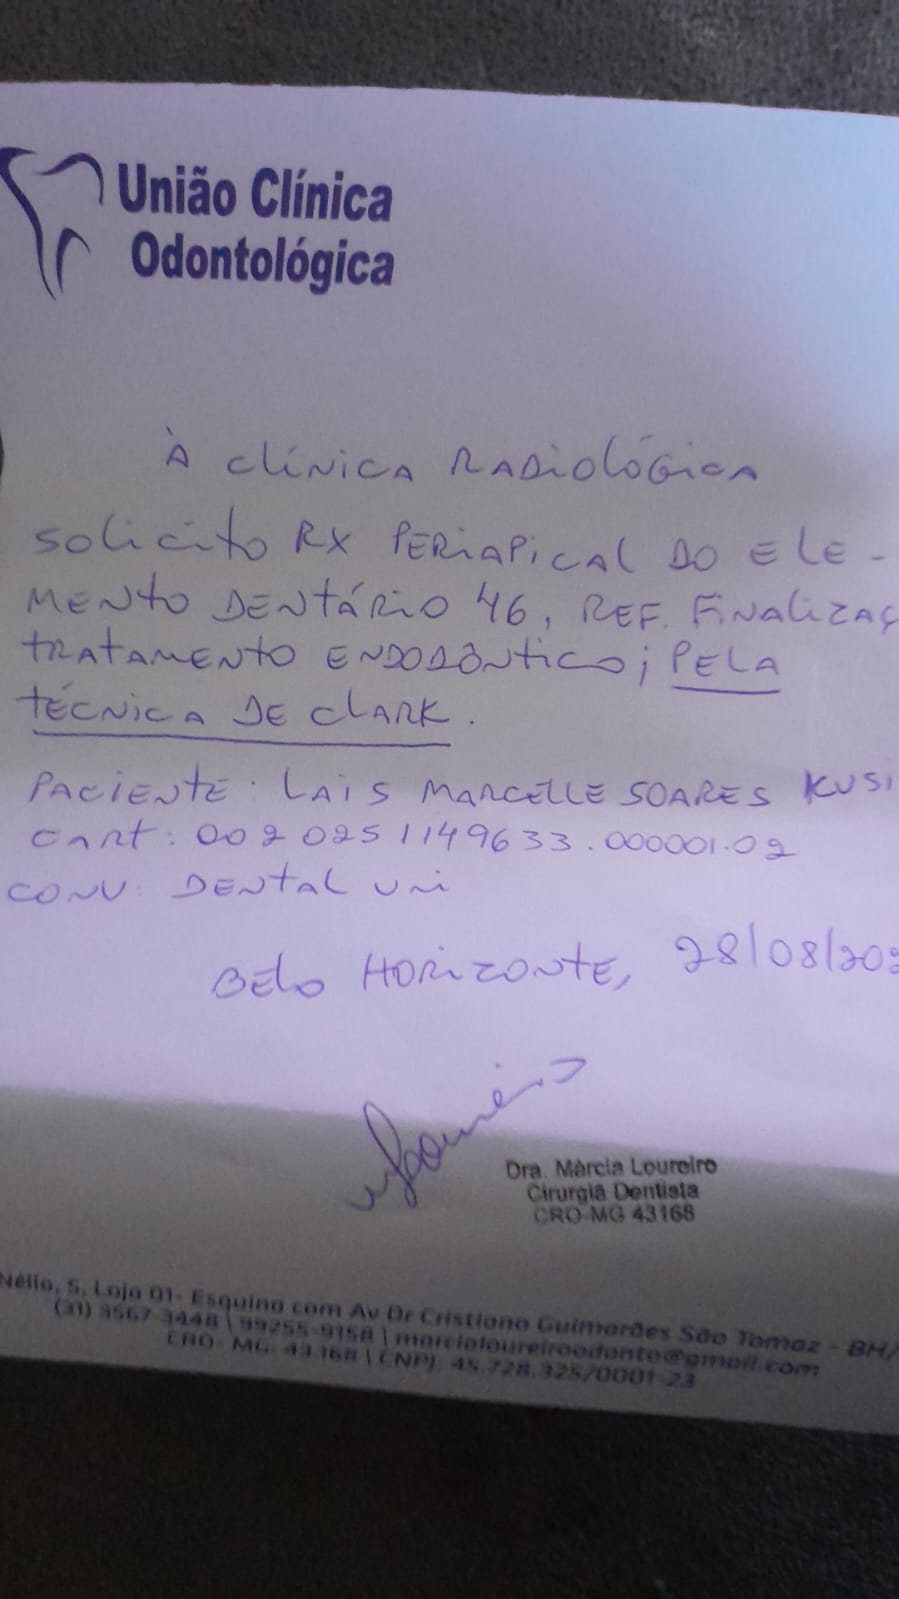 União Clínica
Odontológica
À Clínica Radiológica
Solicito RX Periapical do ele-
mento dentário 46, ref. finalizaç
tratamento endodôntico; pela
técnica de Clark.
Paciente: Laís Marcelle Soares Kusi
Cart: 002 0251149633.000001.02
Conv: Dental Uni
Belo Horizonte, 28/08/202
Dra. Márcia Loureiro
Cirurgiã Dentista
CRO-MG 43168
Nélio, 5, Loja 01- Esquina com Av Dr Cristiano Guimarães São Tomaz - BH/
(31) 3567-3448 \ 99255-9158 \ marcialoureiroodonto@gmail.com
CRO- MG: 43.168 \ CNPJ: 45.728.325/0001-23